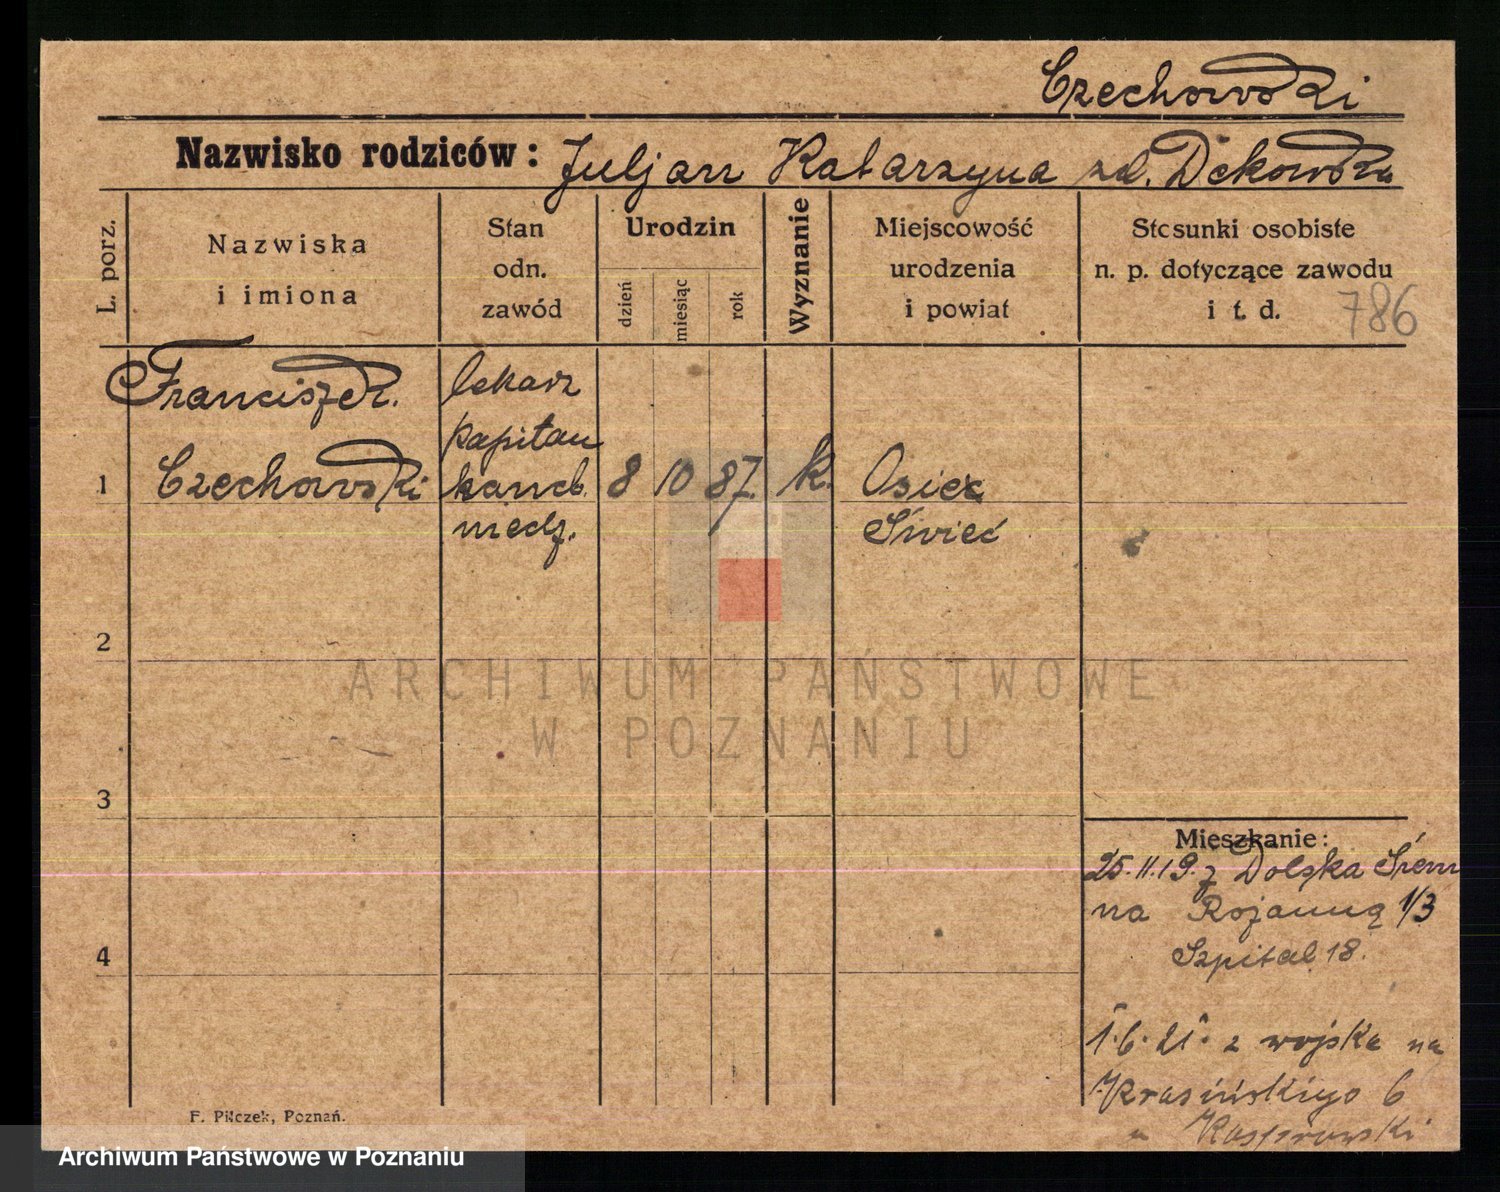 Czechowski
Nazwisko rodziców: Juljan Katarzyna zd. Dekowska
L. porz.
Nazwiska
i imiona
Stan
odn.
zawód
Urodzin
dzień
miesiąc
rok
Wyznanie
Miejscowość
urodzenia
i powiat
Stosunki osobiste
n. p. dotyczące zawodu
i t. d.
786
1
Franciszek.
Czechowski
lekarz
kapitan
kand.
medz.
8
10
87.
k.
Osiek
Świeć
2
3
4
Mieszkanie:
25.11.19. z Dolska Śrem
na 1/3
Szpital 18.
1.6.21. z wojska na
Krasińskiego 6
u Kasprowski
F. Pilczek, Poznań.
ARCHIWUM PAŃSTWOWE
W POZNANIU
Archiwum Państwowe w Poznaniu